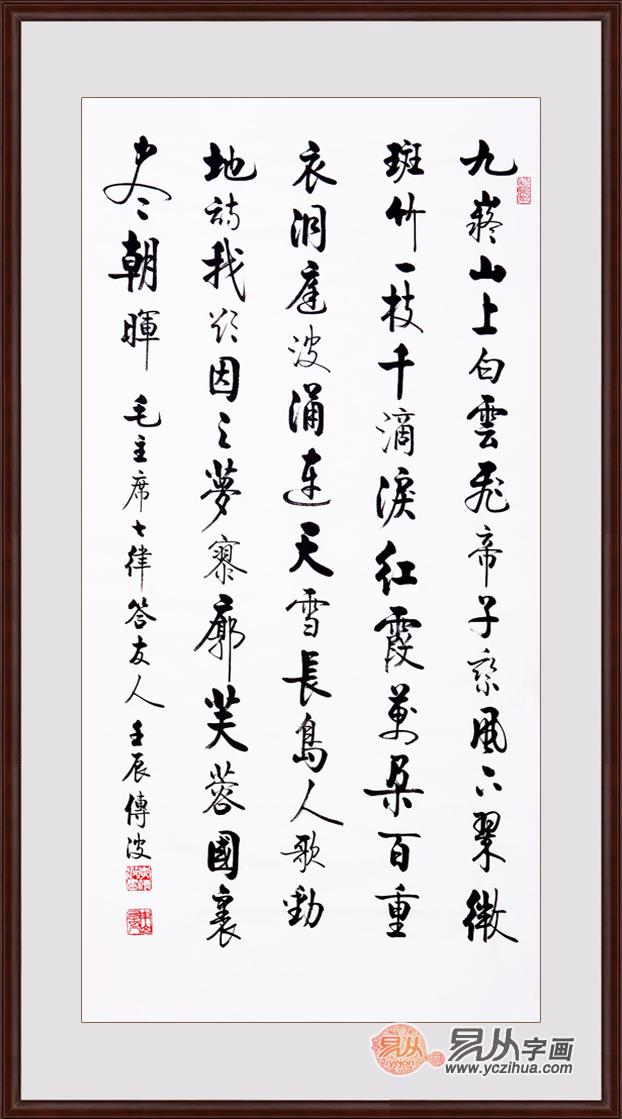 九嶷山上白雲飛帝子乘風下翠微
斑竹一枝千滴淚紅霞萬朵百重
衣洞庭波涌連天雪長島人歌動
地詩我欲因之夢寥廓芙蓉國裏
尽朝暉 毛主席七律答友人 壬辰傳波
易从
易从字画
www.yczihua.com